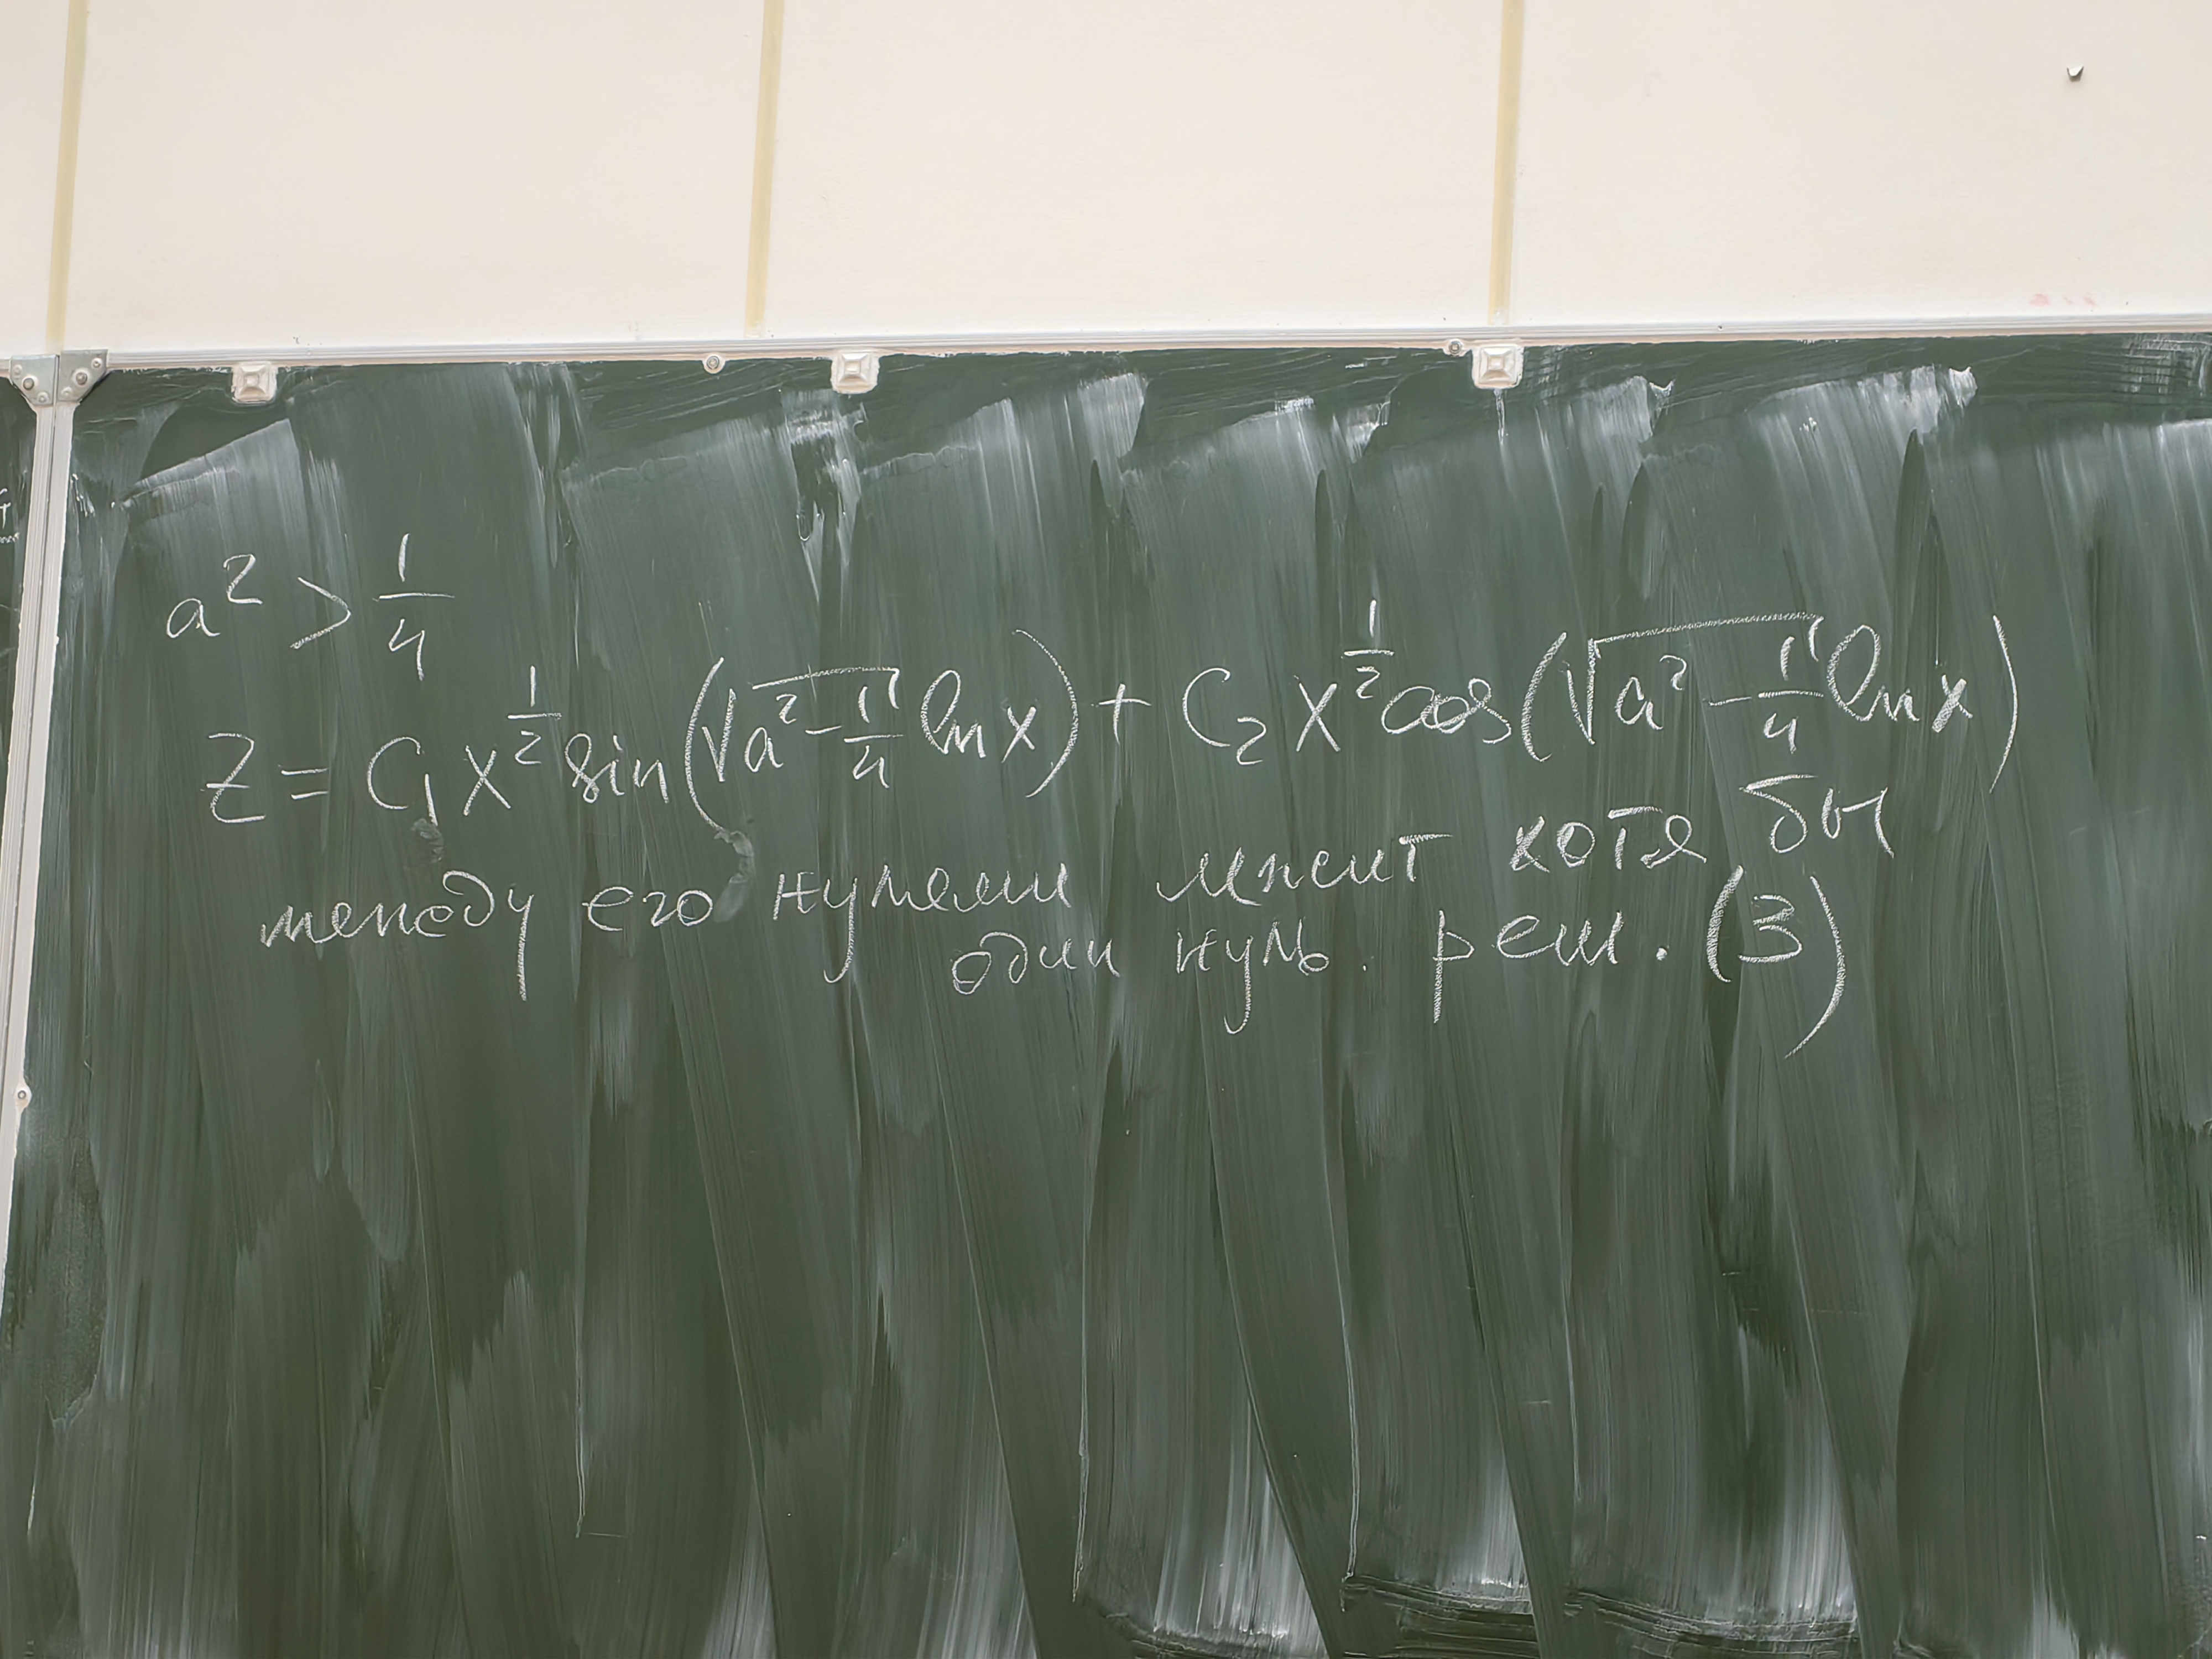 a² > 1/4
z = C₁ x^(1/2) sin(√(a² - 1/4) ln x) + C₂ x^(1/2) cos(√(a² - 1/4) ln x)
между его нулями лежит хотя бы
один нуль. реш. (3)